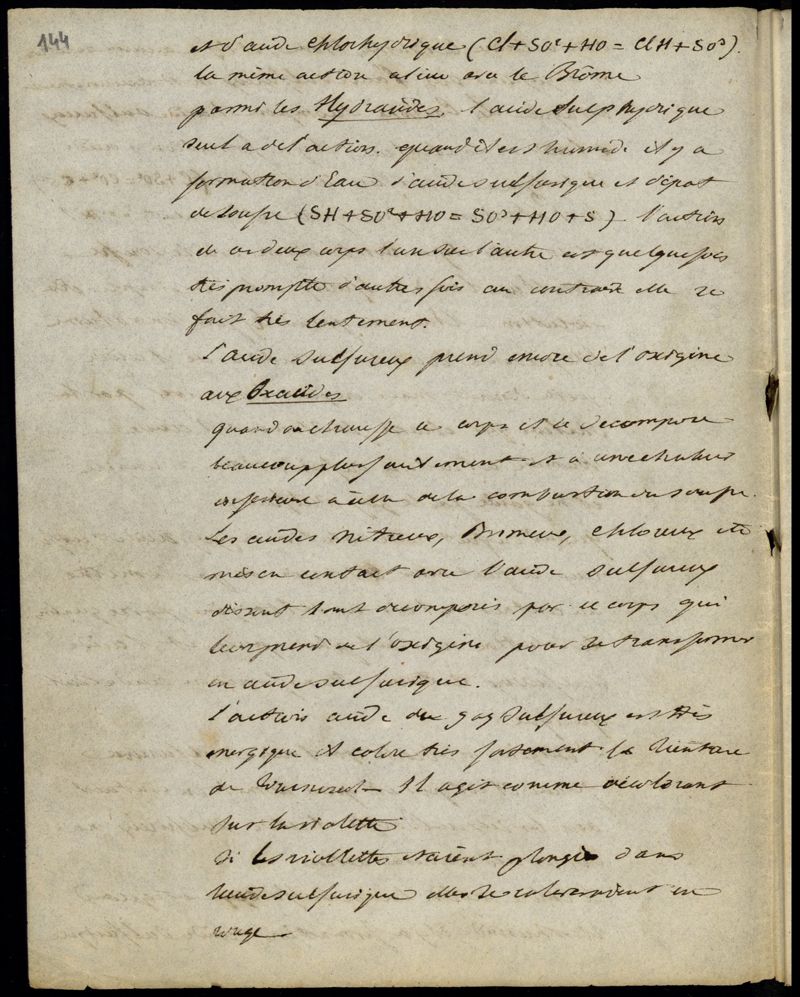 144
et d'acide chlorhydrique (Cl + SO² + HO = ClH + SO³).
la même action a lieu avec le Brôme
parmi les Hydracides, l'acide Sulphydrique
seul a de l'action. quand il est humide il y a
formation d'Eau d'acide sulfurique et dépot
de soufre (SH + SO² + HO = SO³ + HO + S) l'action
de ces deux corps l'un sur l'autre est quelquefois
très prompte d'autres fois au contraire elle se
fait très lentement.
l'acide sulfureux prend encore de l'oxigène
aux Oxacides
quand on chauffe ce corps il se decompose
beaucoup plus facilement et à une chaleur
inferieure à celle de la combustion du soufre.
Les acides Nitreux, Bromeux, Chloreux etc
mis en contact avec l'acide sulfureux
disent tout decomposés par ce corps qui
leur prend de l'oxigène pour se transformer
en acide sulfurique.
l'action acide du gaz Sulfureux est très
energique et colore très fortement la teinture
de tournesol Il agit comme décolorant
sur la violette
Si les viollettes etaient plongés dans
l'acide sulfurique elles se coloreraient en
rouge